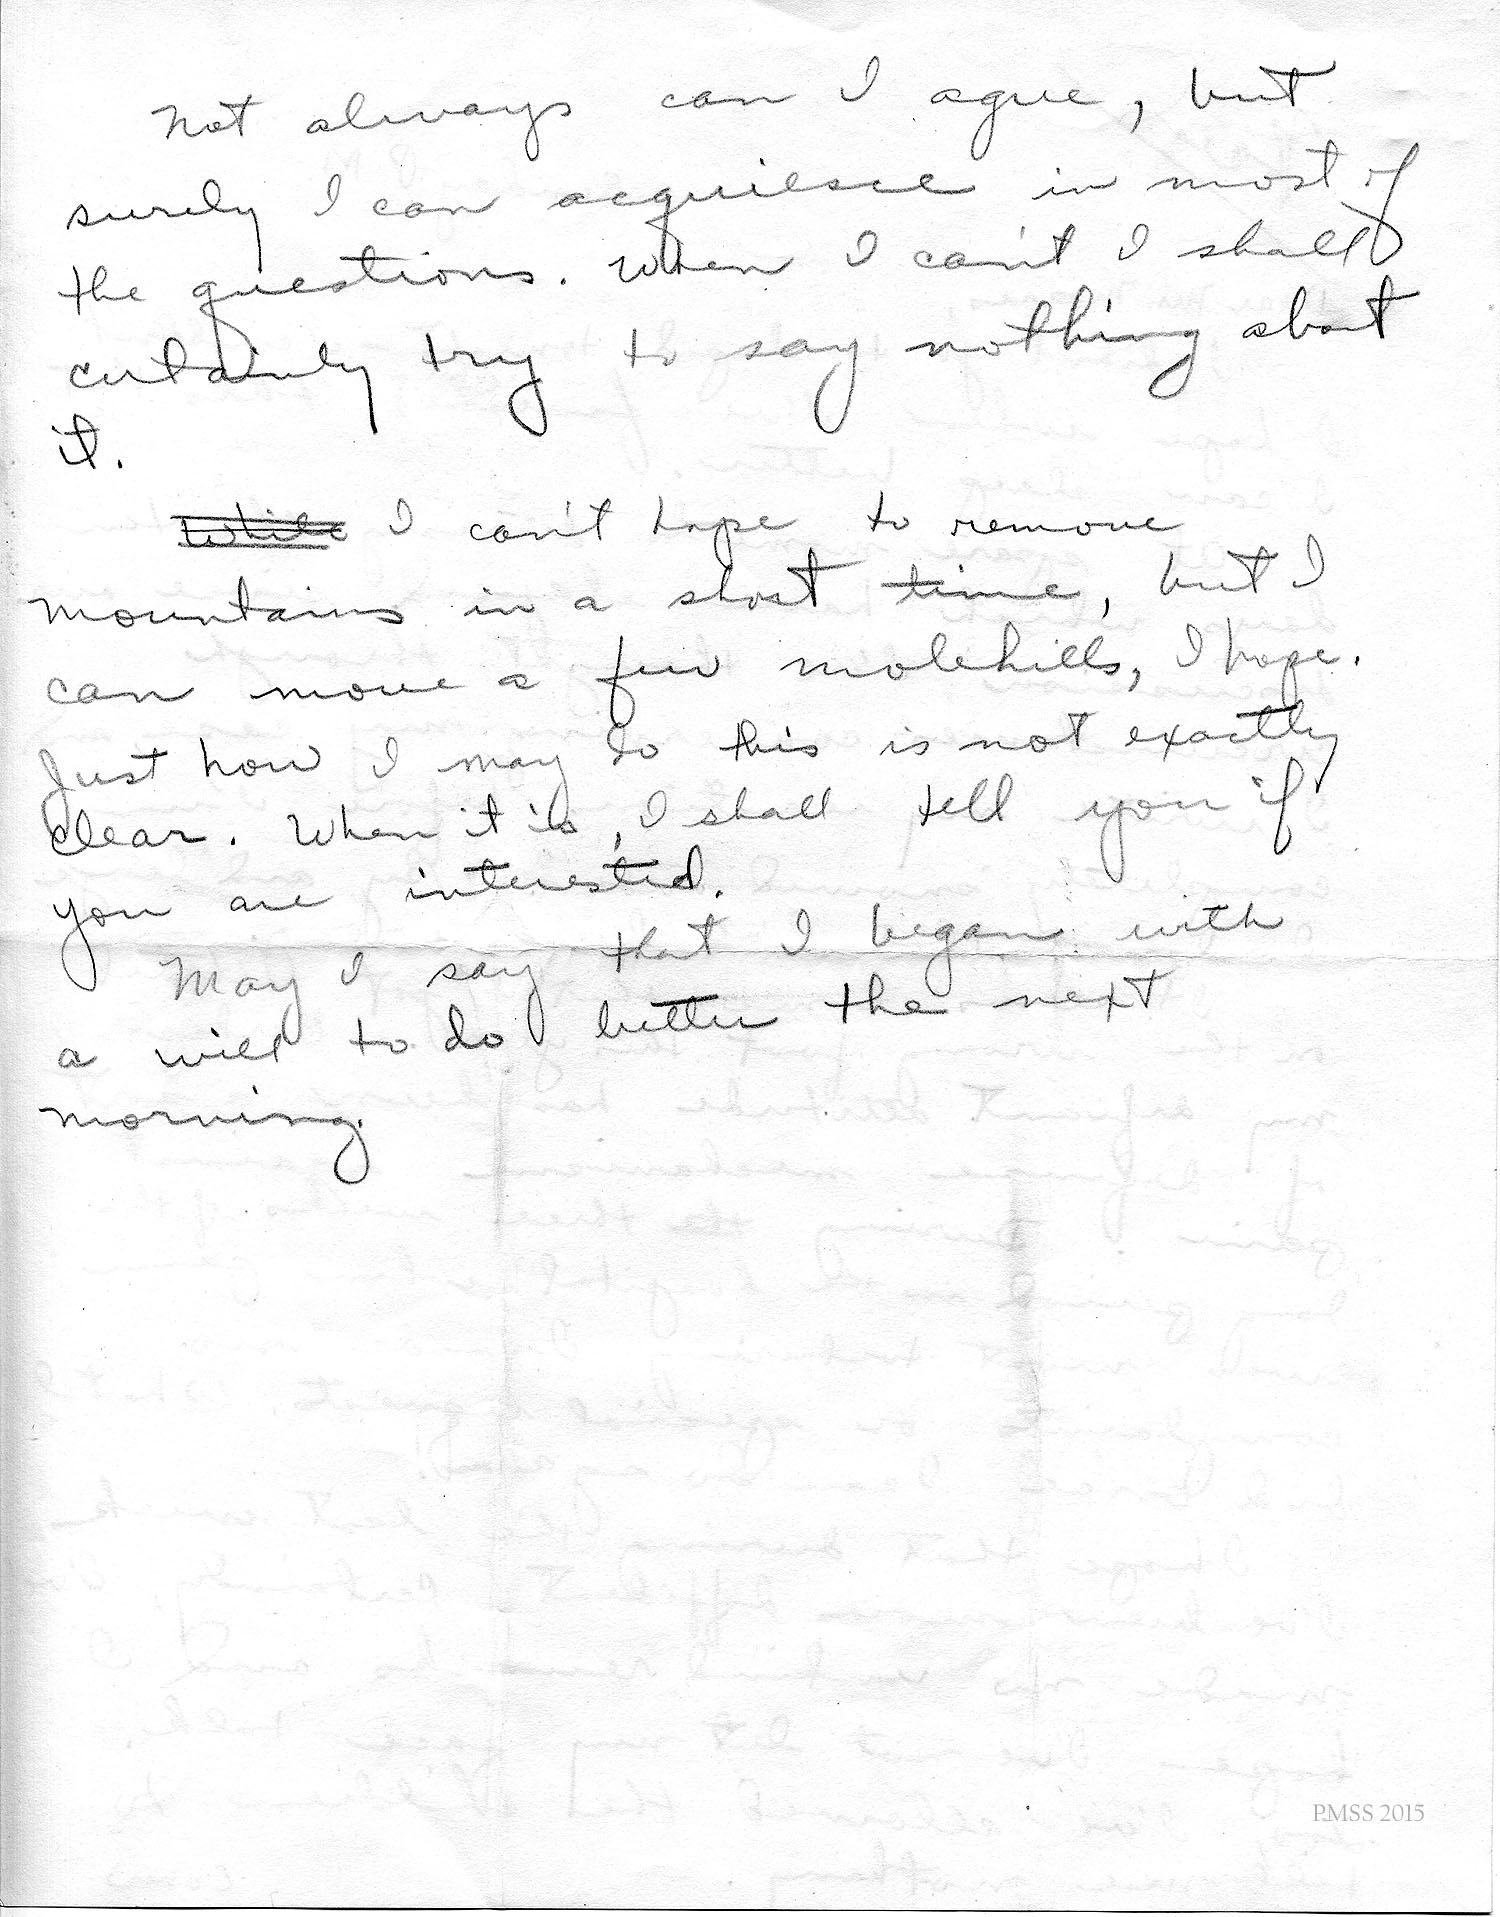 Not always can I agree, but
surely I can acquiesce in most of
the questions. When I can't I shall
certainly try to say nothing about
it.
While I can't hope to remove
mountains in a short time, but I
can move a few molehills, I hope.
Just how I may do this is not exactly
clear. When it is, I shall tell you if
you are interested.
May I say that I began with
a will to do better the next
morning.
PMSS 2015